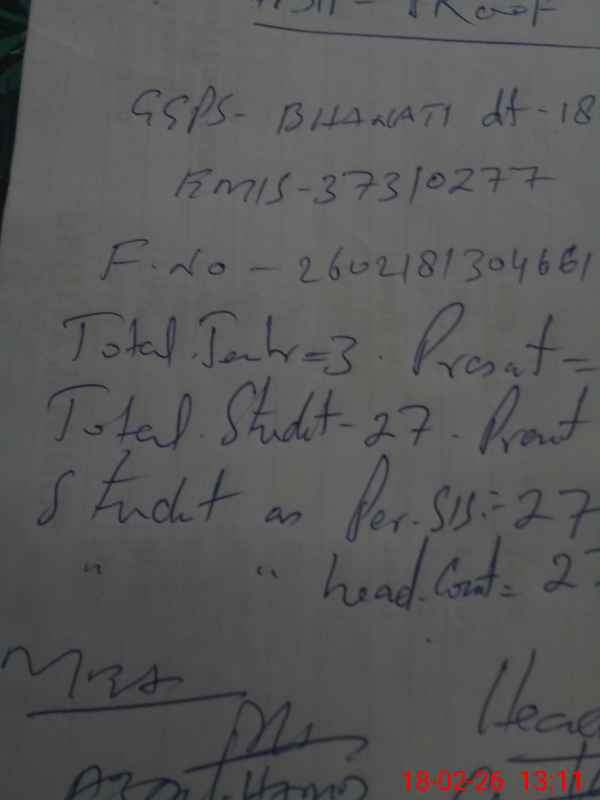 GGPS - BHANATI dt - 18
EMIS - 37310277
F. No - 2602181304661
Total. Teachr = 3. Presat =
Total. Studt - 27. Presnt
Studt as Per. SIS: = 27
" " head. Count = 2
MEA
Head
18-02-26 13:11